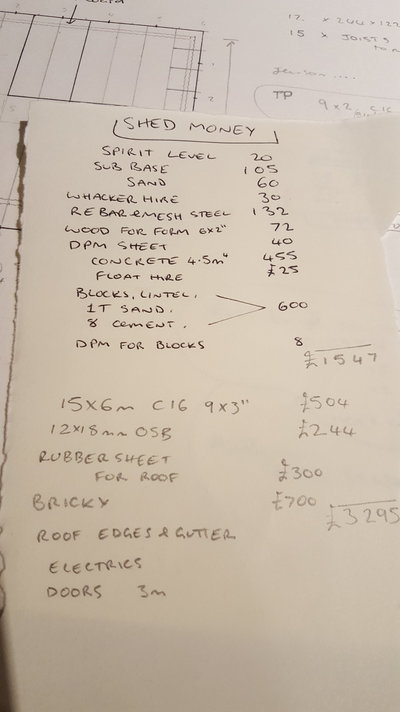 12. × 244 × 122
15 × JOISTS
TP
9 × 2
SHED MONEY
SPIRIT LEVEL 20
SUB BASE 105
SAND 60
WHACKER HIRE 30
REBAR & MESH STEEL 132
WOOD FOR FORM 6×2" 72
DPM SHEET 40
CONCRETE 4.5m³ 455
FLOAT HIRE £25
BLOCKS, LINTEL,
1T SAND. 600
8 CEMENT.
DPM FOR BLOCKS 8
£1547
15×6m C16 9×3" £504
12×18mm OSB £244
RUBBER SHEET
FOR ROOF £300
BRICKY £700
£3295
ROOF EDGES & GUTTER
ELECTRICS
DOORS 3m